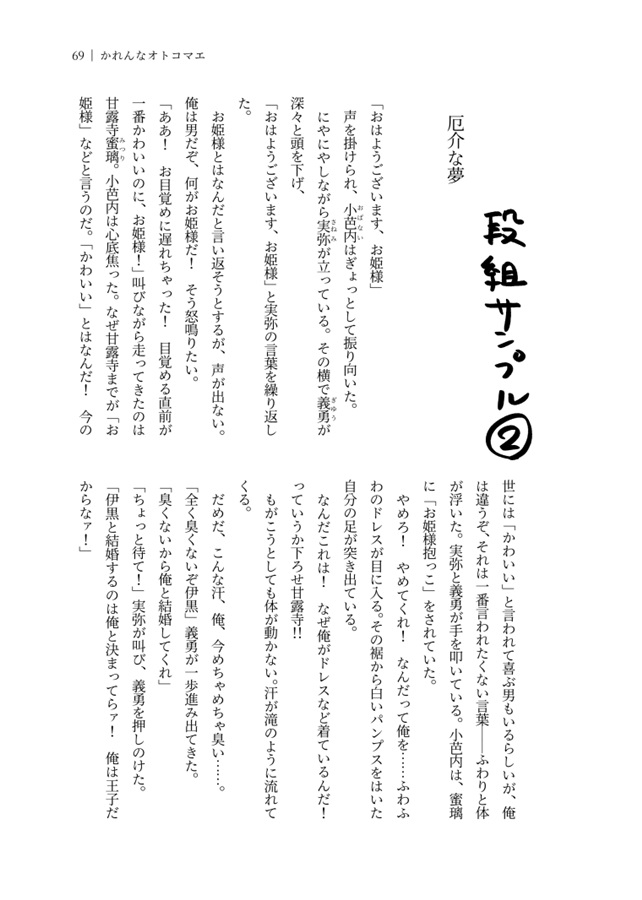 69｜かれんなオトコマエ
段組サンプル②
厄介な夢
「おはようございます、お姫様」
声を掛けられ、小芭内はぎょっとして振り向いた。
おばない
にやにやしながら実弥が立っている。その横で義勇が
さねみ
ぎゆう
深々と頭を下げ、
「おはようございます、お姫様」と実弥の言葉を繰り返し
た。
お姫様とはなんだと言い返そうとするが、声が出ない。
俺は男だぞ、何がお姫様だ！　そう怒鳴りたい。
「ああ！　お目覚めに遅れちゃった！　目覚める直前が
一番かわいいのに、お姫様！」叫びながら走ってきたのは
甘露寺蜜璃。小芭内は心底焦った。なぜ甘露寺までが「お
みつり
姫様」などと言うのだ。「かわいい」とはなんだ！　今の
世には「かわいい」と言われて喜ぶ男もいるらしいが、俺
は違うぞ、それは一番言われたくない言葉――ふわりと体
が浮いた。実弥と義勇が手を叩いている。小芭内は、蜜璃
に「お姫様抱っこ」をされていた。
やめろ！　やめてくれ！　なんだって俺を……ふわふ
わのドレスが目に入る。その裾から白いパンプスをはいた
自分の足が突き出ている。
なんだこれは！　なぜ俺がドレスなど着ているんだ！
っていうか下ろせ甘露寺!!
もがこうとしても体が動かない。汗が滝のように流れて
くる。
だめだ、こんな汗、俺、今めちゃめちゃ臭い……。
「全く臭くないぞ伊黒」義勇が一歩進み出てきた。
「臭くないから俺と結婚してくれ」
「ちょっと待て！」実弥が叫び、義勇を押しのけた。
「伊黒と結婚するのは俺と決まってらァ！　俺は王子だ
からなァ！」